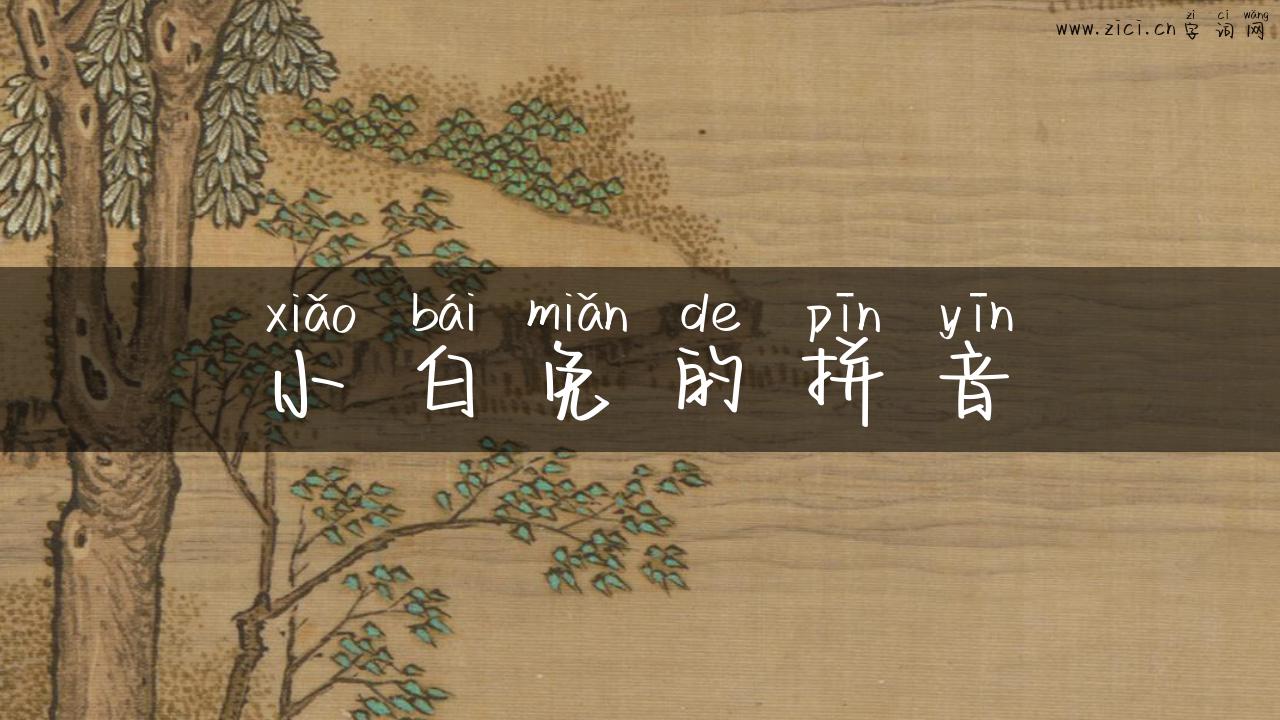 zì cí wǎng
www.zici.cn 字词网
xiǎo bái miǎn de pīn yīn
小白免的拼音